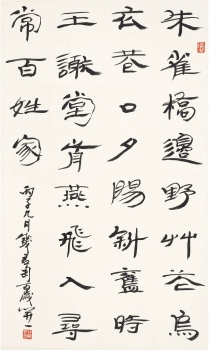 朱雀橋邊野艸花烏
衣巷口夕陽斜舊時
王謝堂前燕飛入尋
常百姓家
丙子九月錢君匋